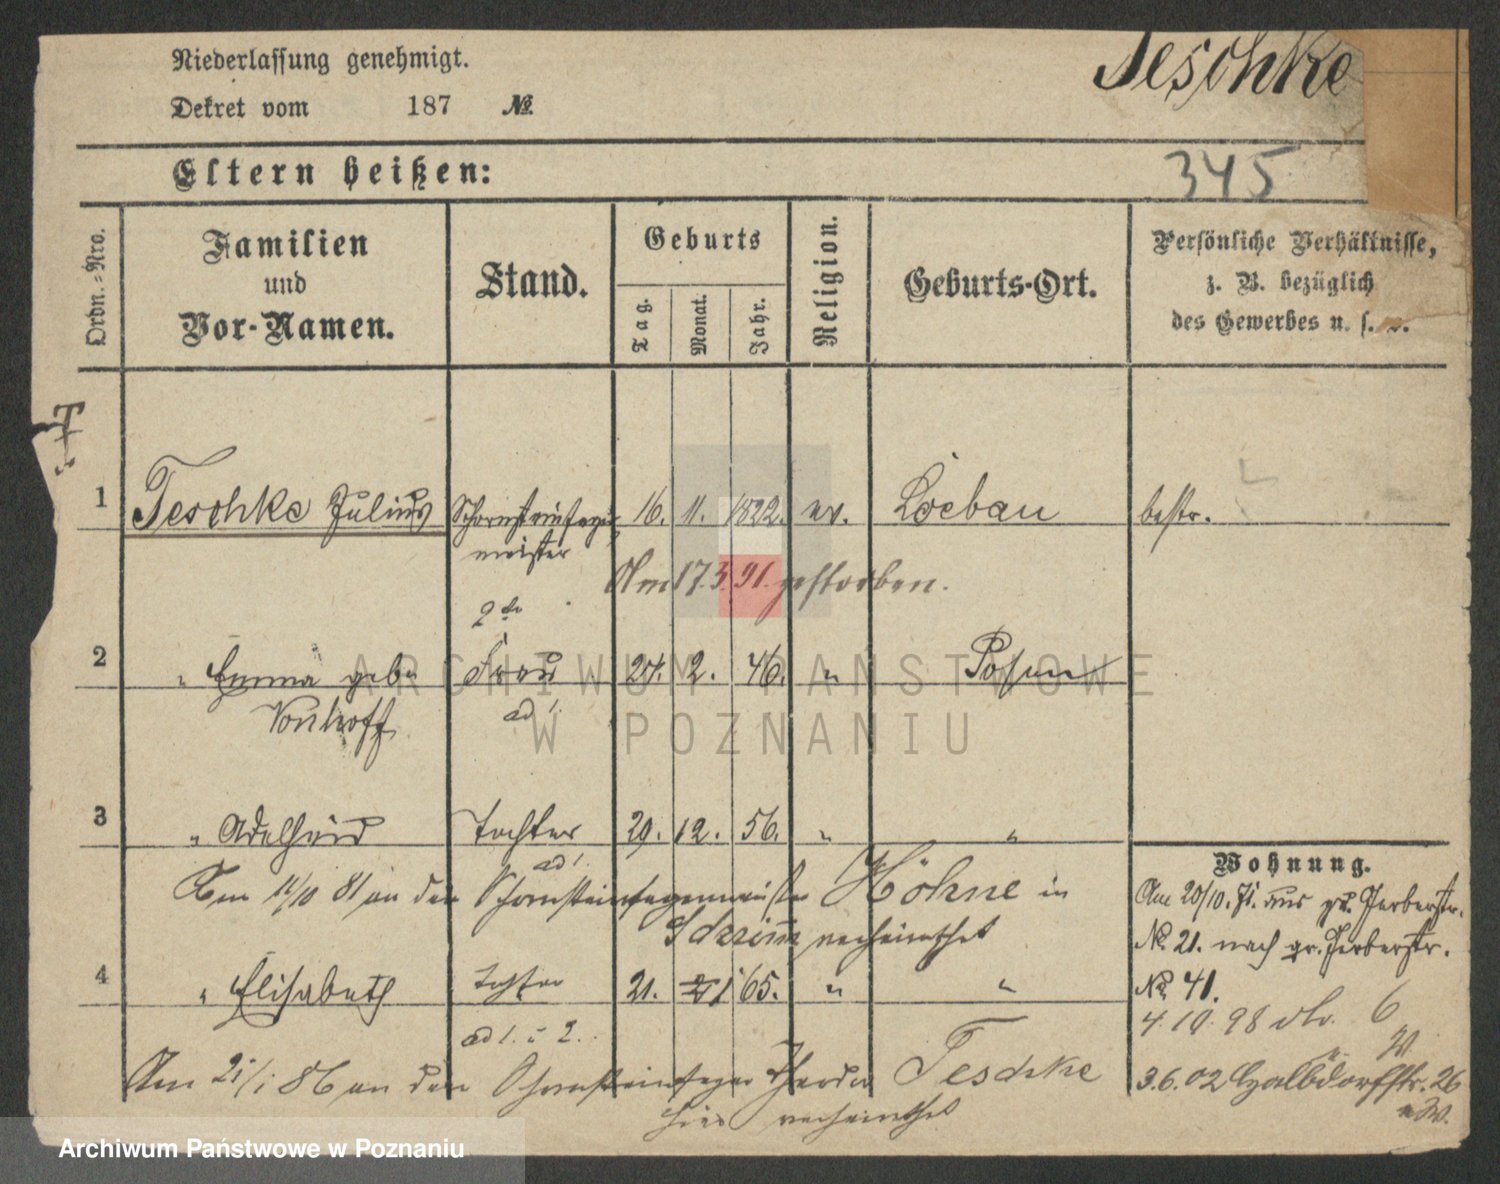 Niederlassung genehmigt.
Teschke
Dekret vom 187 №
Eltern heißen:
345
Ordn.-Nro.
Familien und Vor-Namen.
Stand.
Geburts
Tag.
Monat.
Jahr.
Religion.
Geburts-Ort.
Persönliche Verhältnisse,
z. B. bezüglich
des Gewerbes u. s. w.
1 Teschke Julius Schornsteinfeger 16. 11. 1822. ev. Loebau bestr.
meister
Am 17.3.91. gestorben.
2te
2 " Emma geb. Frau 24. 2. 46. " Posen
Vonhoff ad 1.
3 " Adelheid Tochter 29. 12. 56. " "
ad 1.
Am 11/10 81 an den Schornsteinfegermeister Höhne in
Schrimm verheirathet
4 " Elisabeth Tochter 21. 1 65. " "
ad 1. u 2.
Am 2i/1 86 an den Schornsteinfeger Teschke
hier verheirathet
Wohnung.
Am 20/10. 71. aus gr. Gerberstr.
№ 21. nach gr. Gerberstr.
№ 41.
4.10.98 6
3.6.02 Halbdorfstr. 26
ARCHIWUM PAŃSTWOWE
W POZNANIU
Archiwum Państwowe w Poznaniu